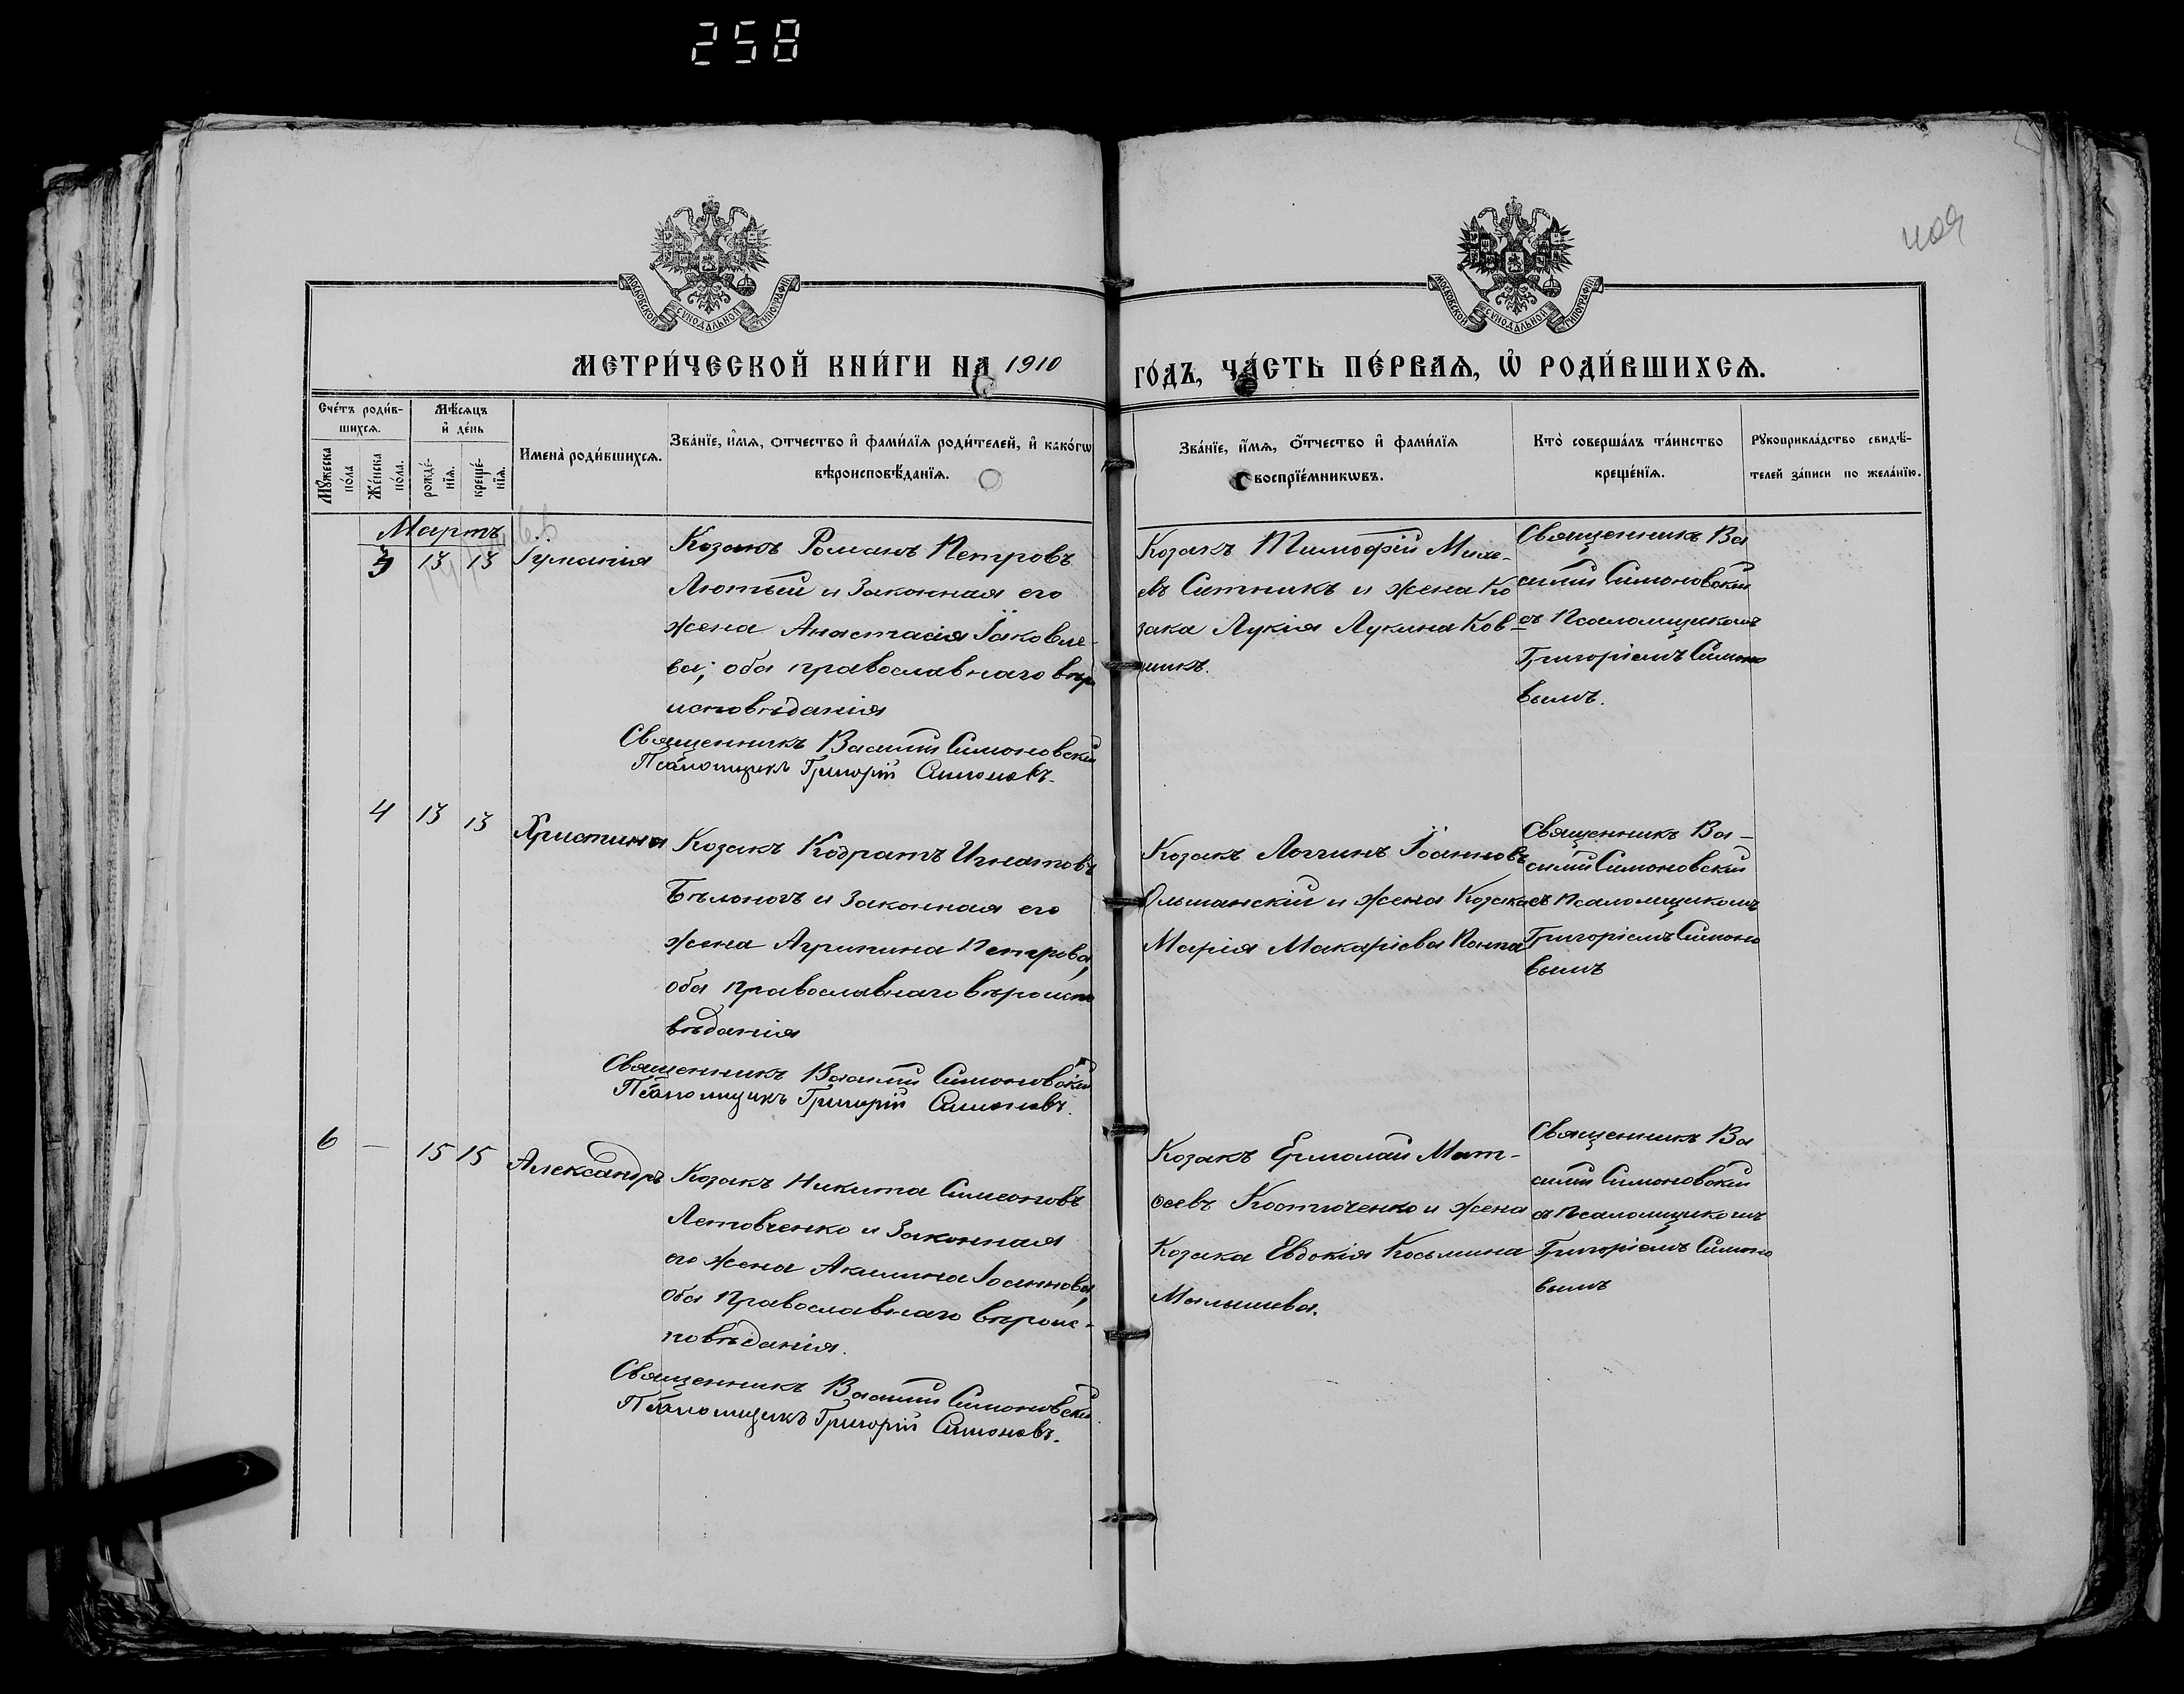 258
409
МОСКОВСКОЙ СѴНОДАЛЬНОЙ ТИПОГРАФІИ
МОСКОВСКОЙ СѴНОДАЛЬНОЙ ТИПОГРАФІИ
МЕТРИ́ЧЕСКОЙ КНИ́ГИ НА 1910 ГО́ДЪ, ЧА́СТЬ ПЕ́РВАѦ, Ѡ҆ РОДИ́ВШИХСѦ.
Сче́тъ роди́в-
шихсѧ.
Мꙋ́жеска по́ла
Же́нска по́ла.
Мѣ́сѧцъ
и҆ де́нь
рожде́-нїѧ.
креще́-нїѧ.
Имена̀ роди́вшихсѧ.
Зва́нїе, и҆́мѧ, ѻтчество и҆ фами́лїѧ роди́телей, и҆ како́гѡ
вѣроисповѣ́данїѧ.
Зва́нїе, и҆́мѧ, ѻ҆́тчество и҆ фами́лїѧ
воспрїе́мникѡвъ.
Кто̀ соверша́лъ та́инство
креще́нїѧ.
Рꙋкоприкла́дство свидѣ́-
телей за́писи по жела́нїю.
Мартъ
3 13 13 Іуліанія
Козакъ Романъ Петровъ
Лютый и законная его
жена Анастасія Іаковле-
ва; оба православнаго вѣро
исповѣданія
Священникъ Василій Симоновскій
Псаломщикъ Григорій Симоновъ.
Козакъ Тимофій Михе-
евъ Ситникъ и жена Ко
зака Лукія Лукина Ков-
шикъ.
Священникъ Ва
силій Симоновскій
съ Псаломщикомъ
Григоріемъ Симоно
вымъ.
4 13 13 Христина
Козакъ Кодратъ Игнатовъ
Бѣлоногъ и законная его
жена Агрипина Петрова,
оба православнаго вѣроиспо
вѣданія
Священникъ Василій Симоновскій
Псаломщикъ Григорій Симоновъ.
Козакъ Логгинъ Іоанновъ
Ольшанскій и жена Козака
Марія Макаріева
Священникъ Ва-
силій Симоновскій
съ Псаломщикомъ
Григоріемъ Симоно
вымъ
6 — 15 15 Александръ
Козакъ Никита Симеоновъ
Летовченко и законная
его жена Акилина Іоаннова,
оба Православнаго вѣроис-
повѣданія.
Священникъ Василій Симоновскій
Псаломщикъ Григорій Симоновъ.
Козакъ Ермолай Мат-
ѳеевъ Костюченко и жена
Козака Евдокія Косьмина
Малышева.
Священникъ Ва
силій Симоновскій
съ Псаломщикомъ
Григоріемъ Симоно
вымъ